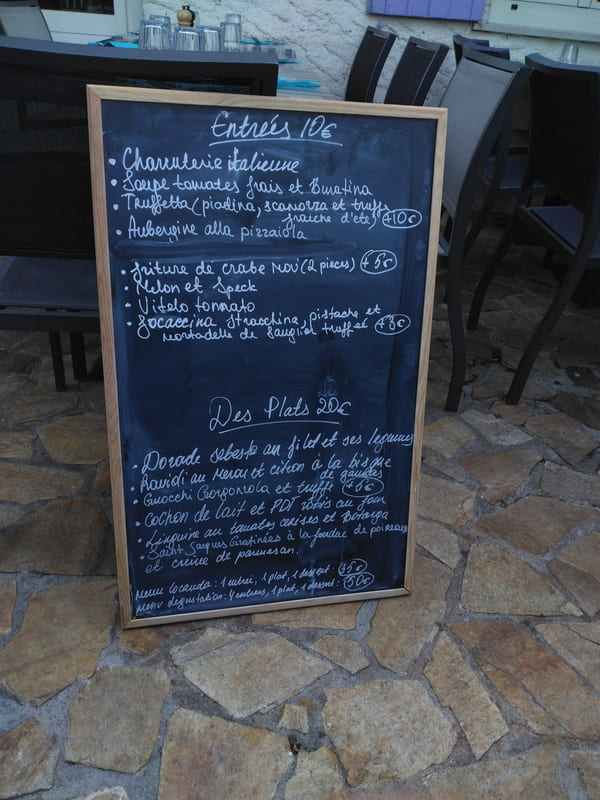 Entrées 10€
• Charcuterie italienne
• Soupe tomates frais et Buratina
• Truffetta (piadina, scamorza et truffe
fraiche d'eté) +10€
• Aubergine alla pizzaiola
• friture de crabe Mou (2 pieces) +5€
• Melon et Speck
• Vitelo tonnato
• focaccina stracchina, pistache et
mortadelle de Sanglier truffée
Des Plats 20€
• Dorade sebaste au filet et ses legumes
• Ravioli au Merou et citron à la bisque
de gambas
• Gnocchi Gorgonzola et truffe +5€
• Cochon de lait et PDT rotis au four
• Linguine au tomates cerises et Botarga
• Saint Jaques Gratinées à la fondue de poireaux
et creme de parmesan.
Menu locanda: 1 entrée, 1 plat, 1 dessert: 35€
Menu degustation: 4 entrees, 1 plat, 1 dessert: 50€